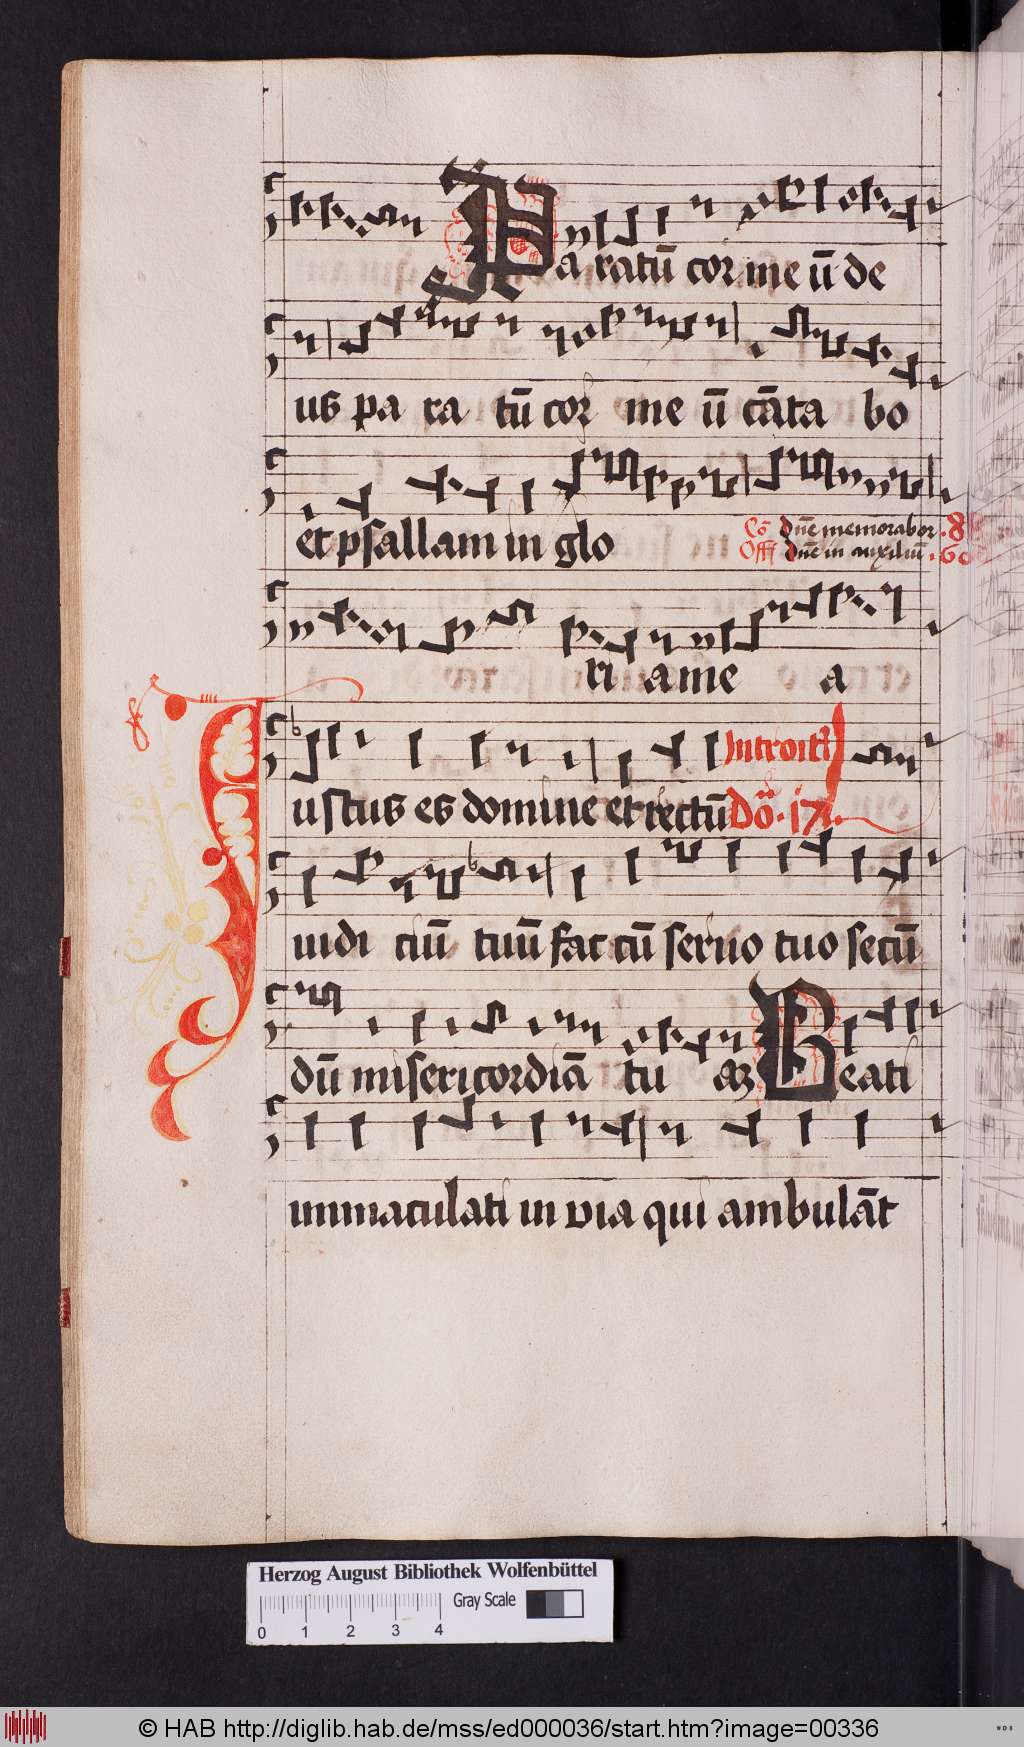 Paratū cor me ū de
us para tū cor me ū cāta bo
et psallam in glo
Cō dne memorabor · 8
Off dne in auxiliū · 60
ri a me a
Iustus es domine et rectū Introit⁹ Do · 17 ·
iudi ciū tuū fac cū seruo tuo secū
dū misericordiā tu aꝫ Beati
immaculati in via qui ambulāt
Herzog August Bibliothek Wolfenbüttel
Gray Scale
0 1 2 3 4
© HAB http://diglib.hab.de/mss/ed000036/start.htm?image=00336